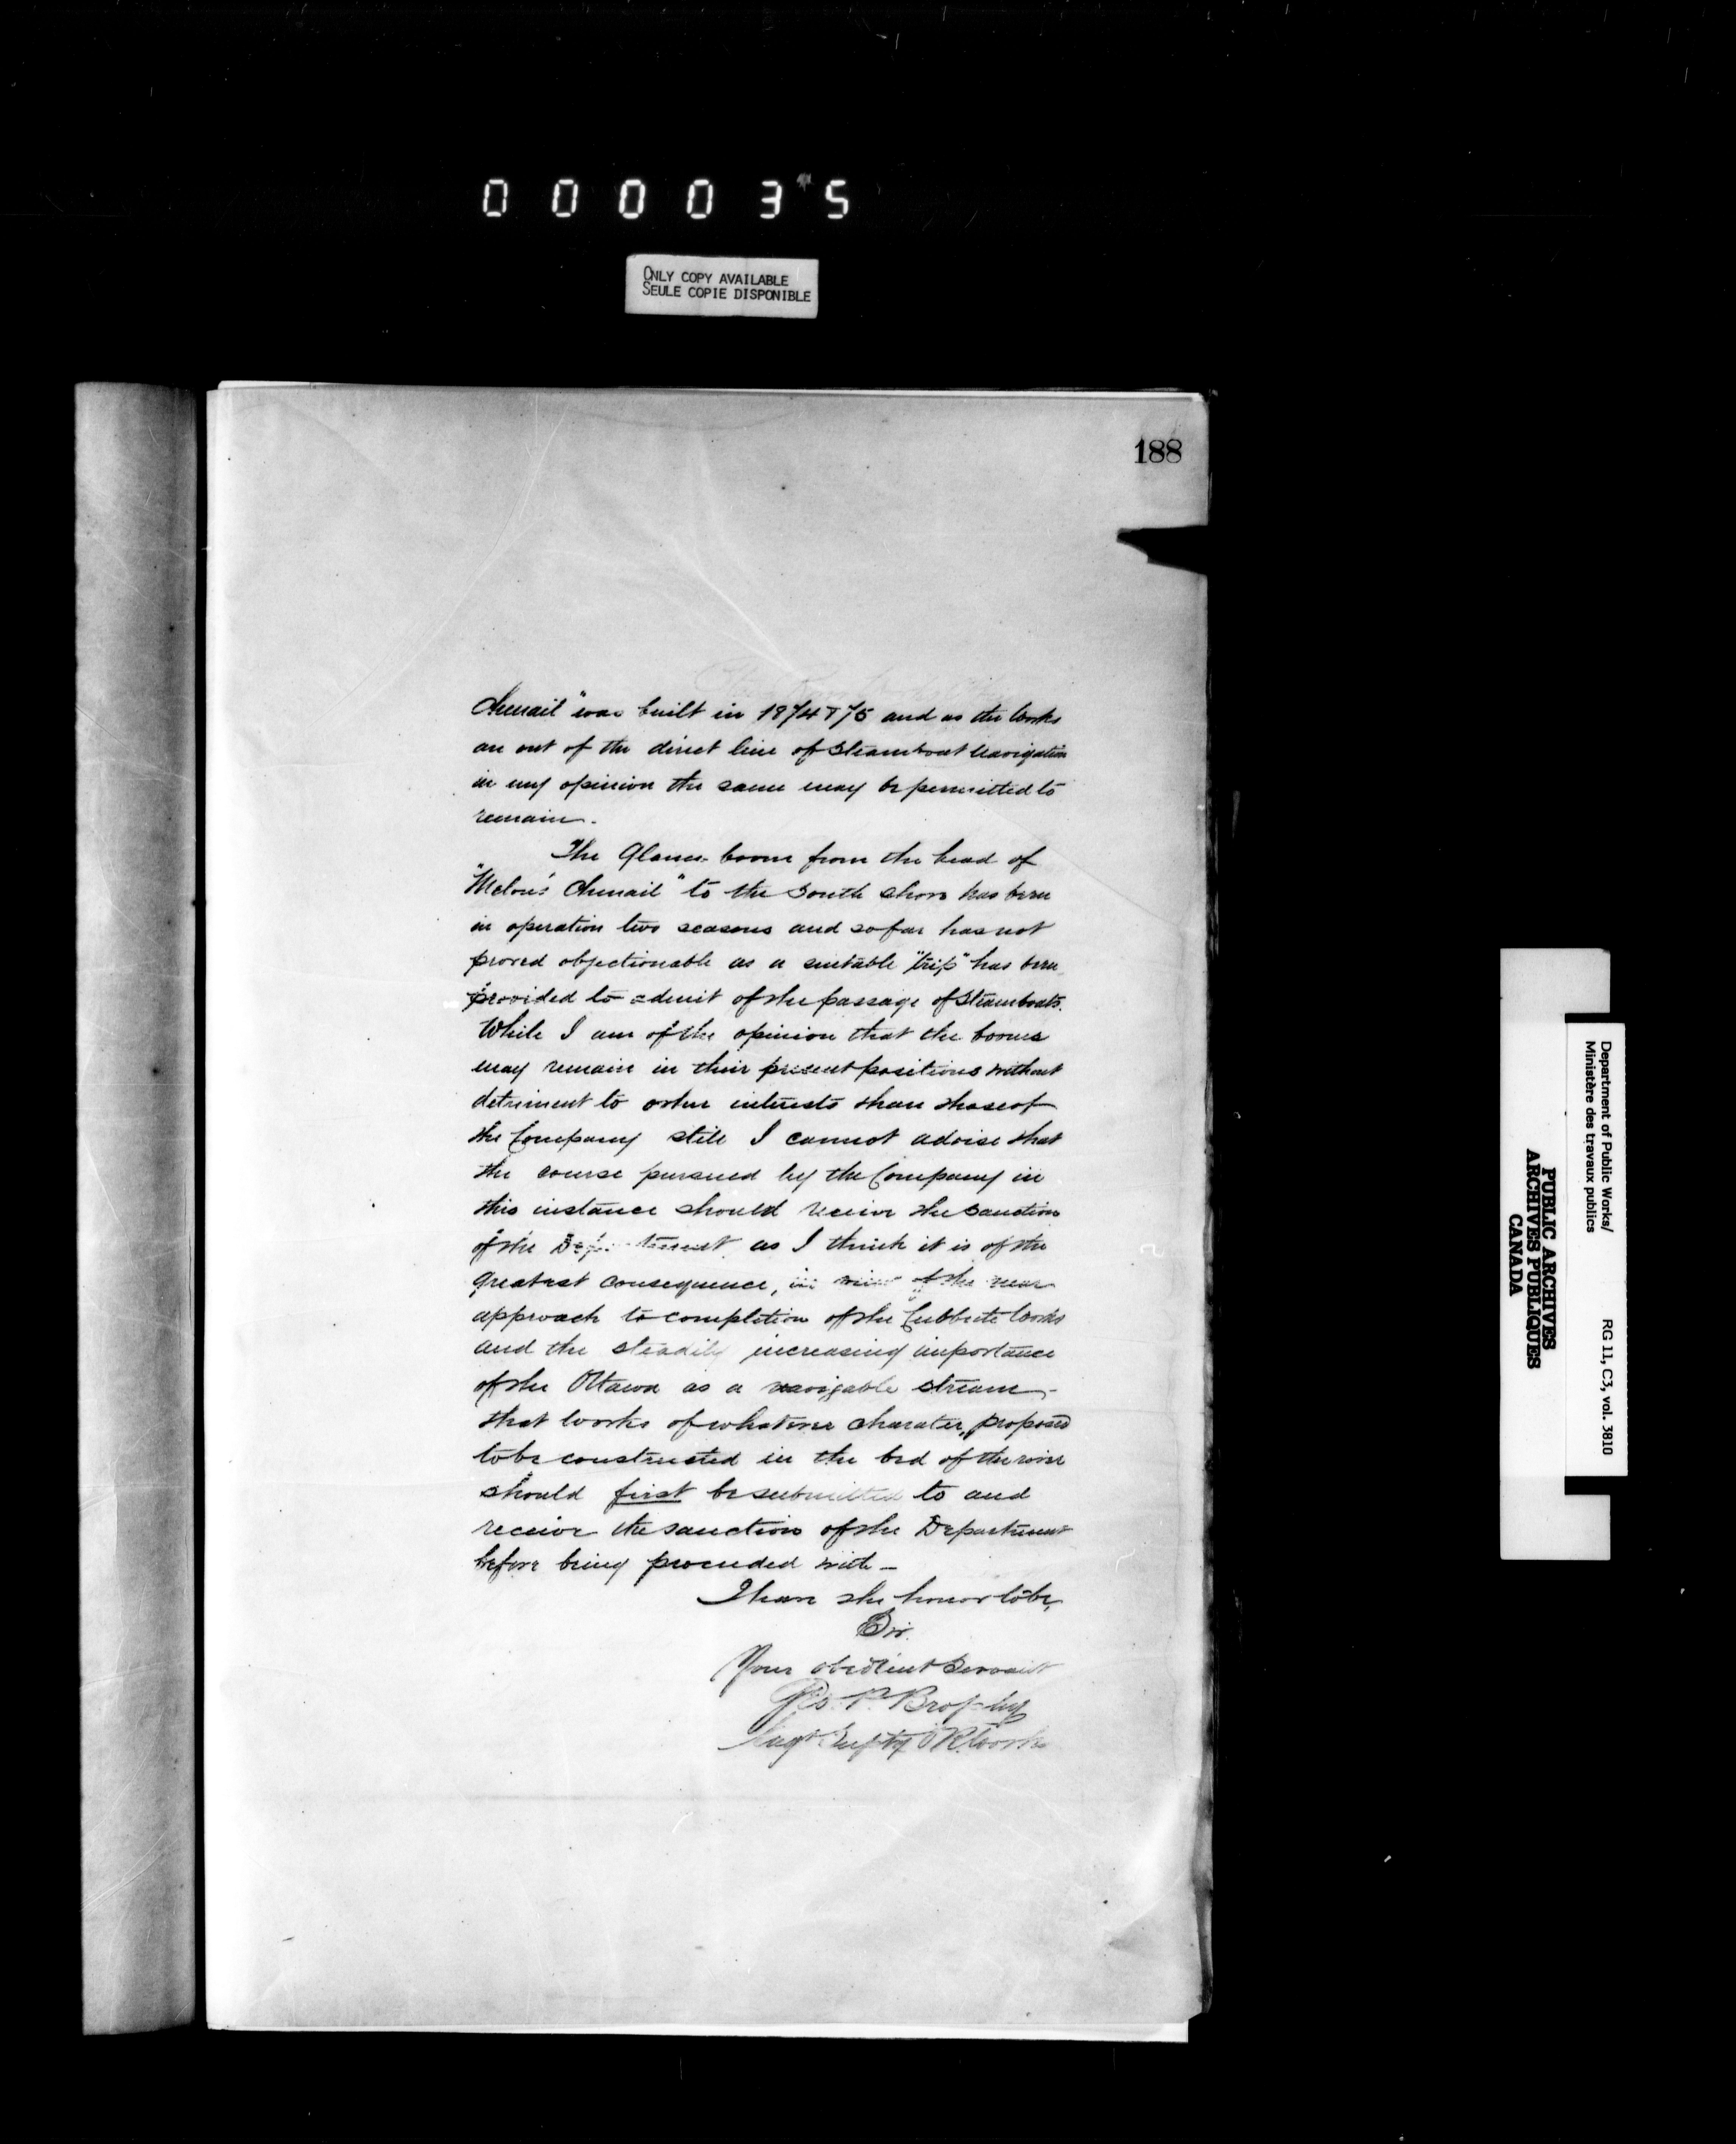 000035
ONLY COPY AVAILABLE
SEULE COPIE DISPONIBLE
188
Chenail" was built in 1874 & 75 and as the works
are out of the direct line of Steamboat Navigation
in my opinion the same may be permitted to
remain.
The Glance boom from the head of
"Melon's Chenail" to the South shore has been
in operation two seasons and so far has not
proved objectionable as a suitable "trip" has been
provided to admit of the passage of Steamboats.
While I am of the opinion that the booms
may remain in their present positions without
detriment to other interests than those of
the Company still I cannot advise that
the course pursued by the Company in
this instance should receive the sanction
of the Department as I think it is of the
greatest consequence, in view of the near
approach to completion of the Culbute Works
and the steadily increasing importance
of the Ottawa as a navigable stream -
that works of whatever charater, proposed
to be constructed in the bed of the river
should first be submitted to and
receive the sanction of the Department
before being proceeded with -
I have the honor to be,
Sir.
Your obedient Servant
Geo. P. Brophy
O R Works
Department of Public Works/
Ministère des travaux publics
RG 11, C3, vol. 3810
PUBLIC ARCHIVES
ARCHIVES PUBLIQUES
CANADA